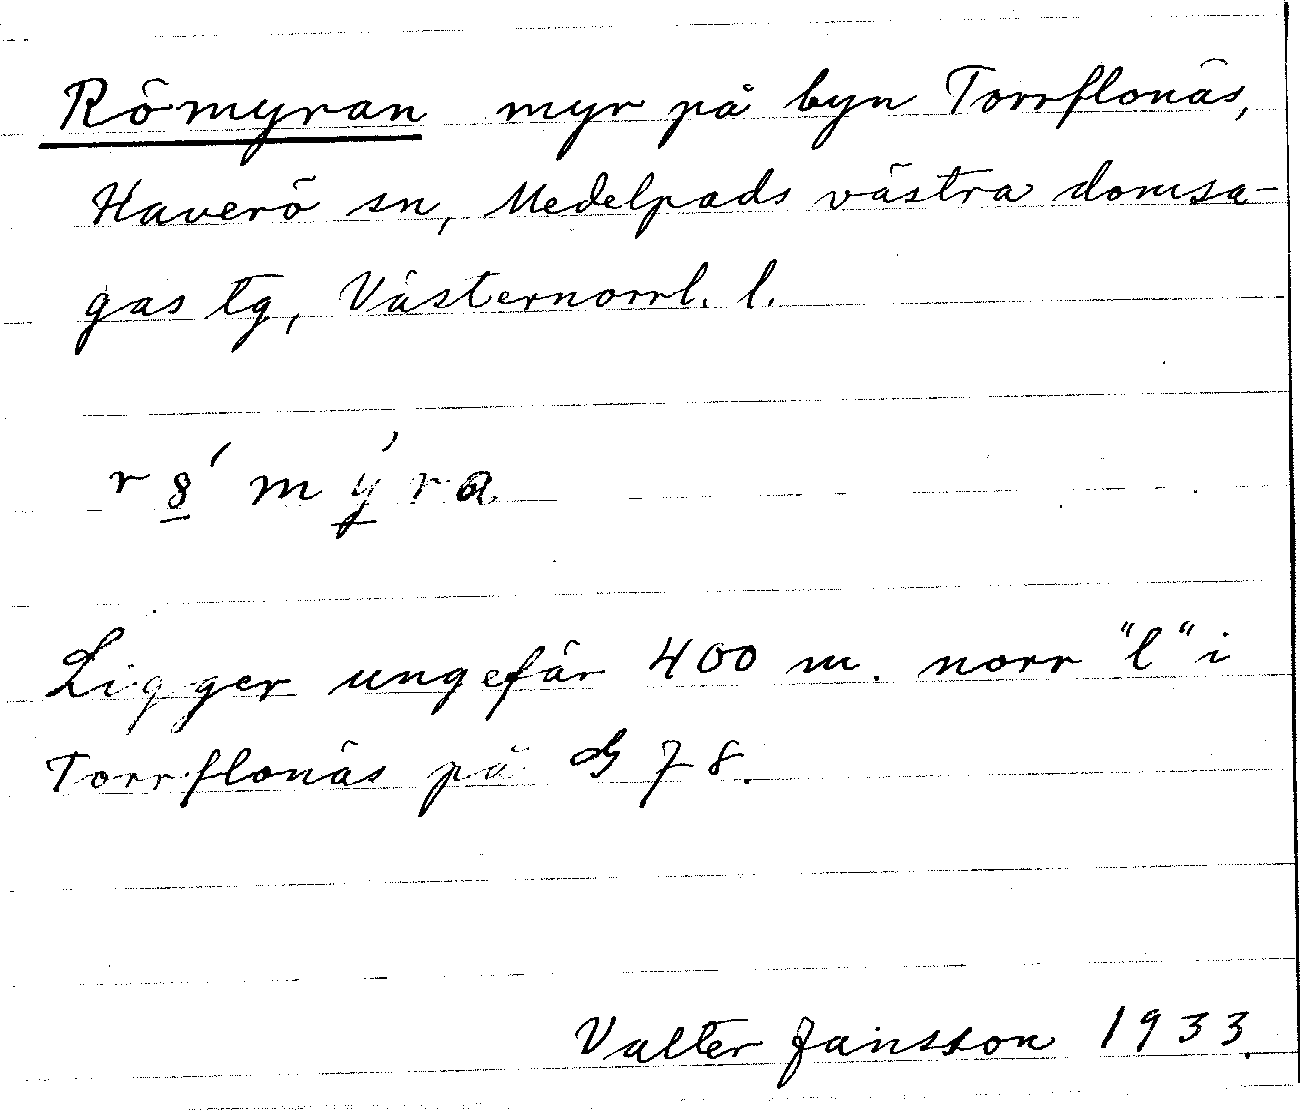 Römyran myr på byn Torrflonäs,
Haverö sn, Medelpads västra domsa-
gas tg, Västernorrl. l.
r8́ mýra
Ligger ungefär 400 m. norr "l" i
Torrflonäs på G 78.
Valter Jansson 1933.